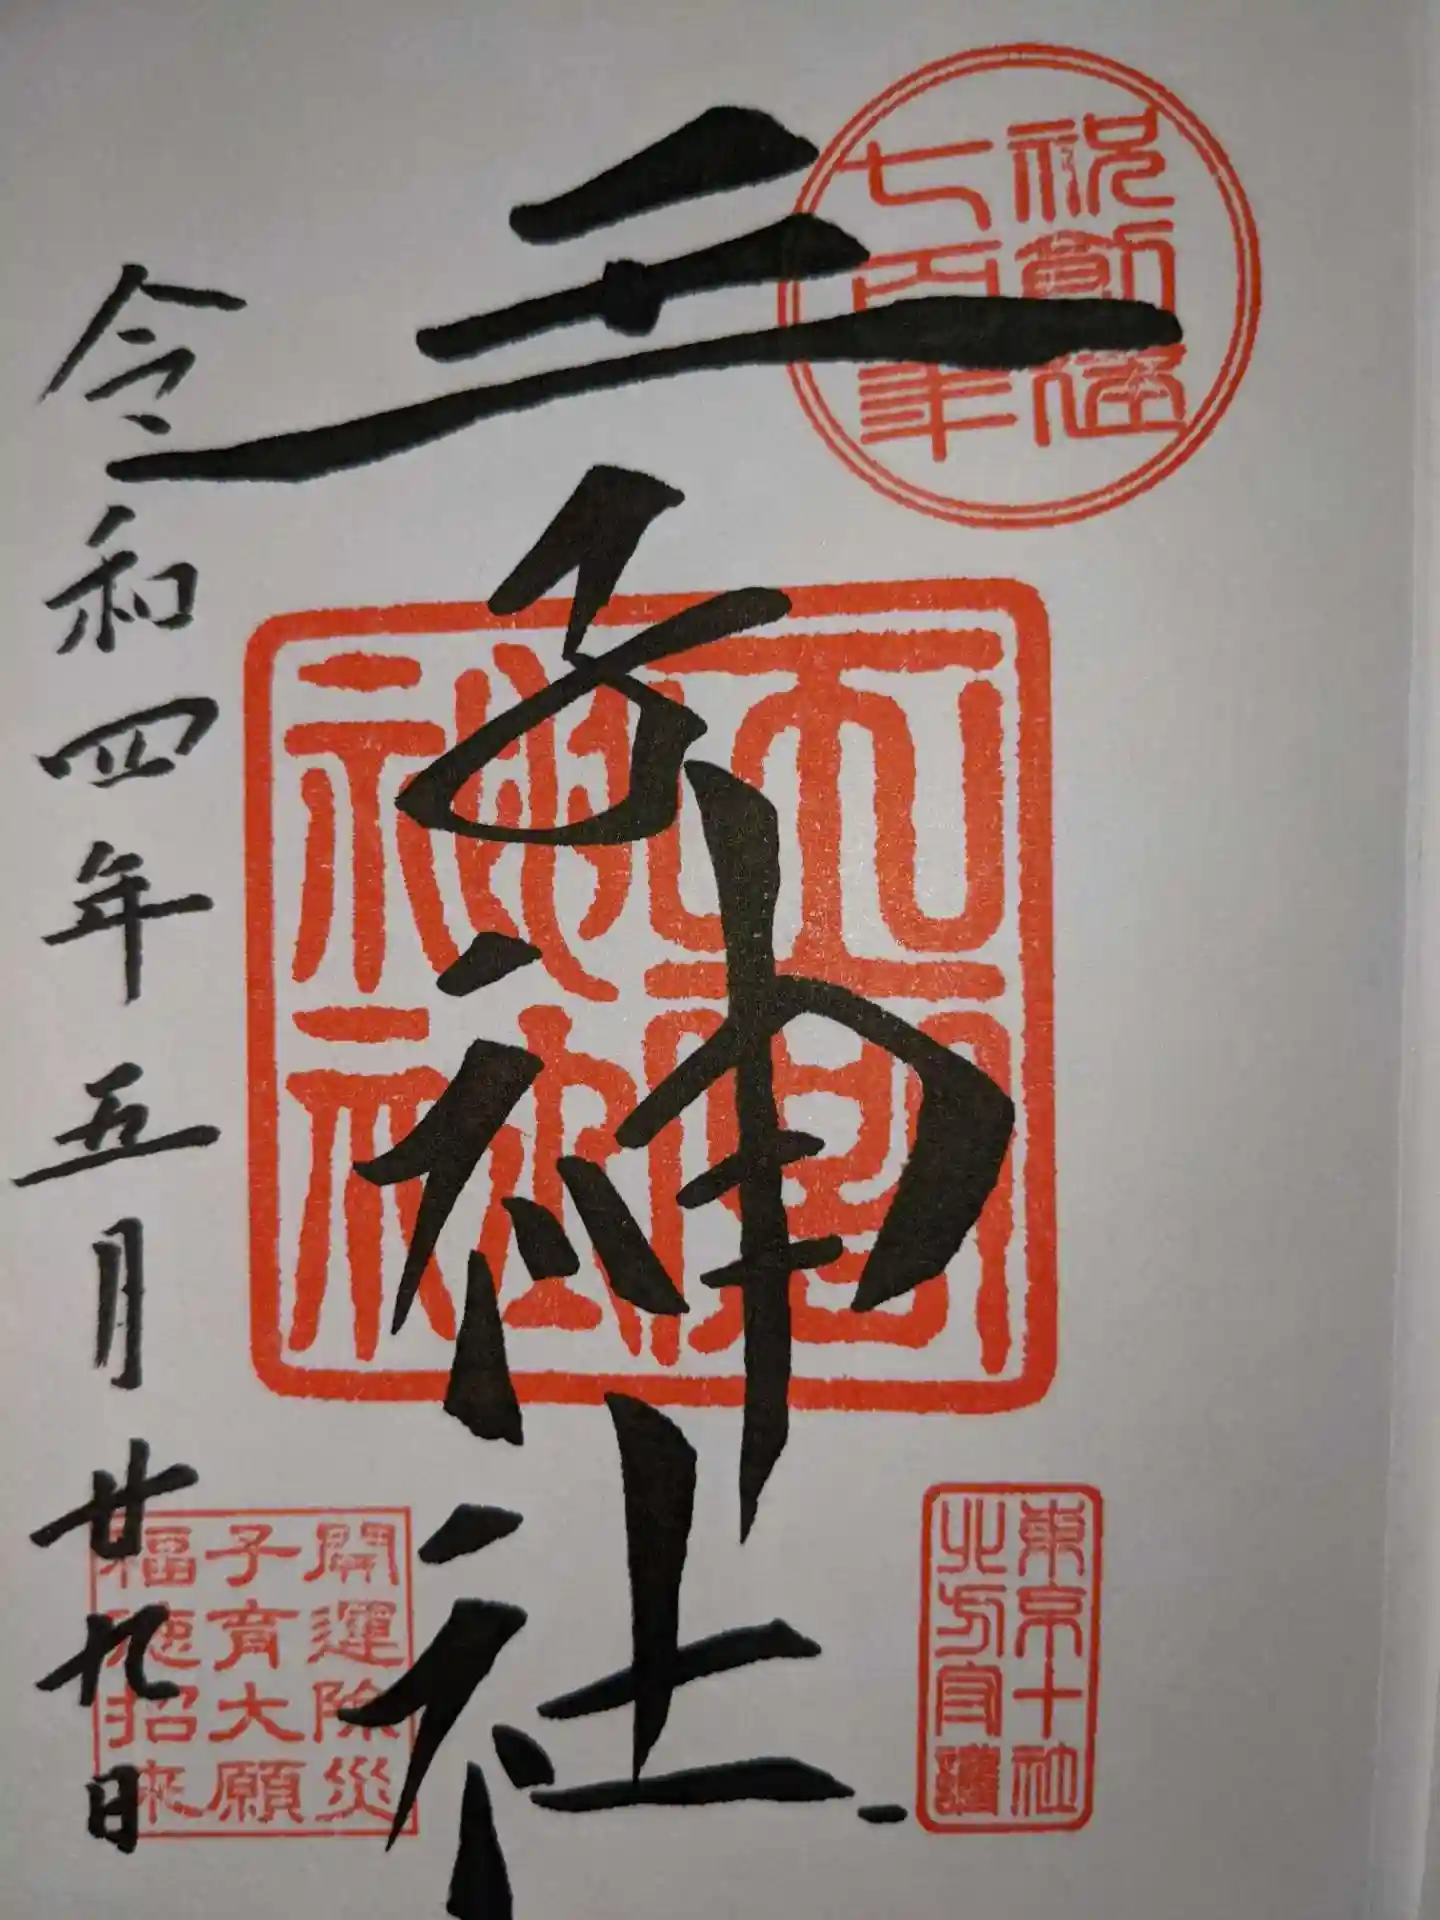 祝創建
七百年
王子神社
王子神社
東京十社
北方守護
開運除災
子育大願
福徳招来
令和四年五月廿九日